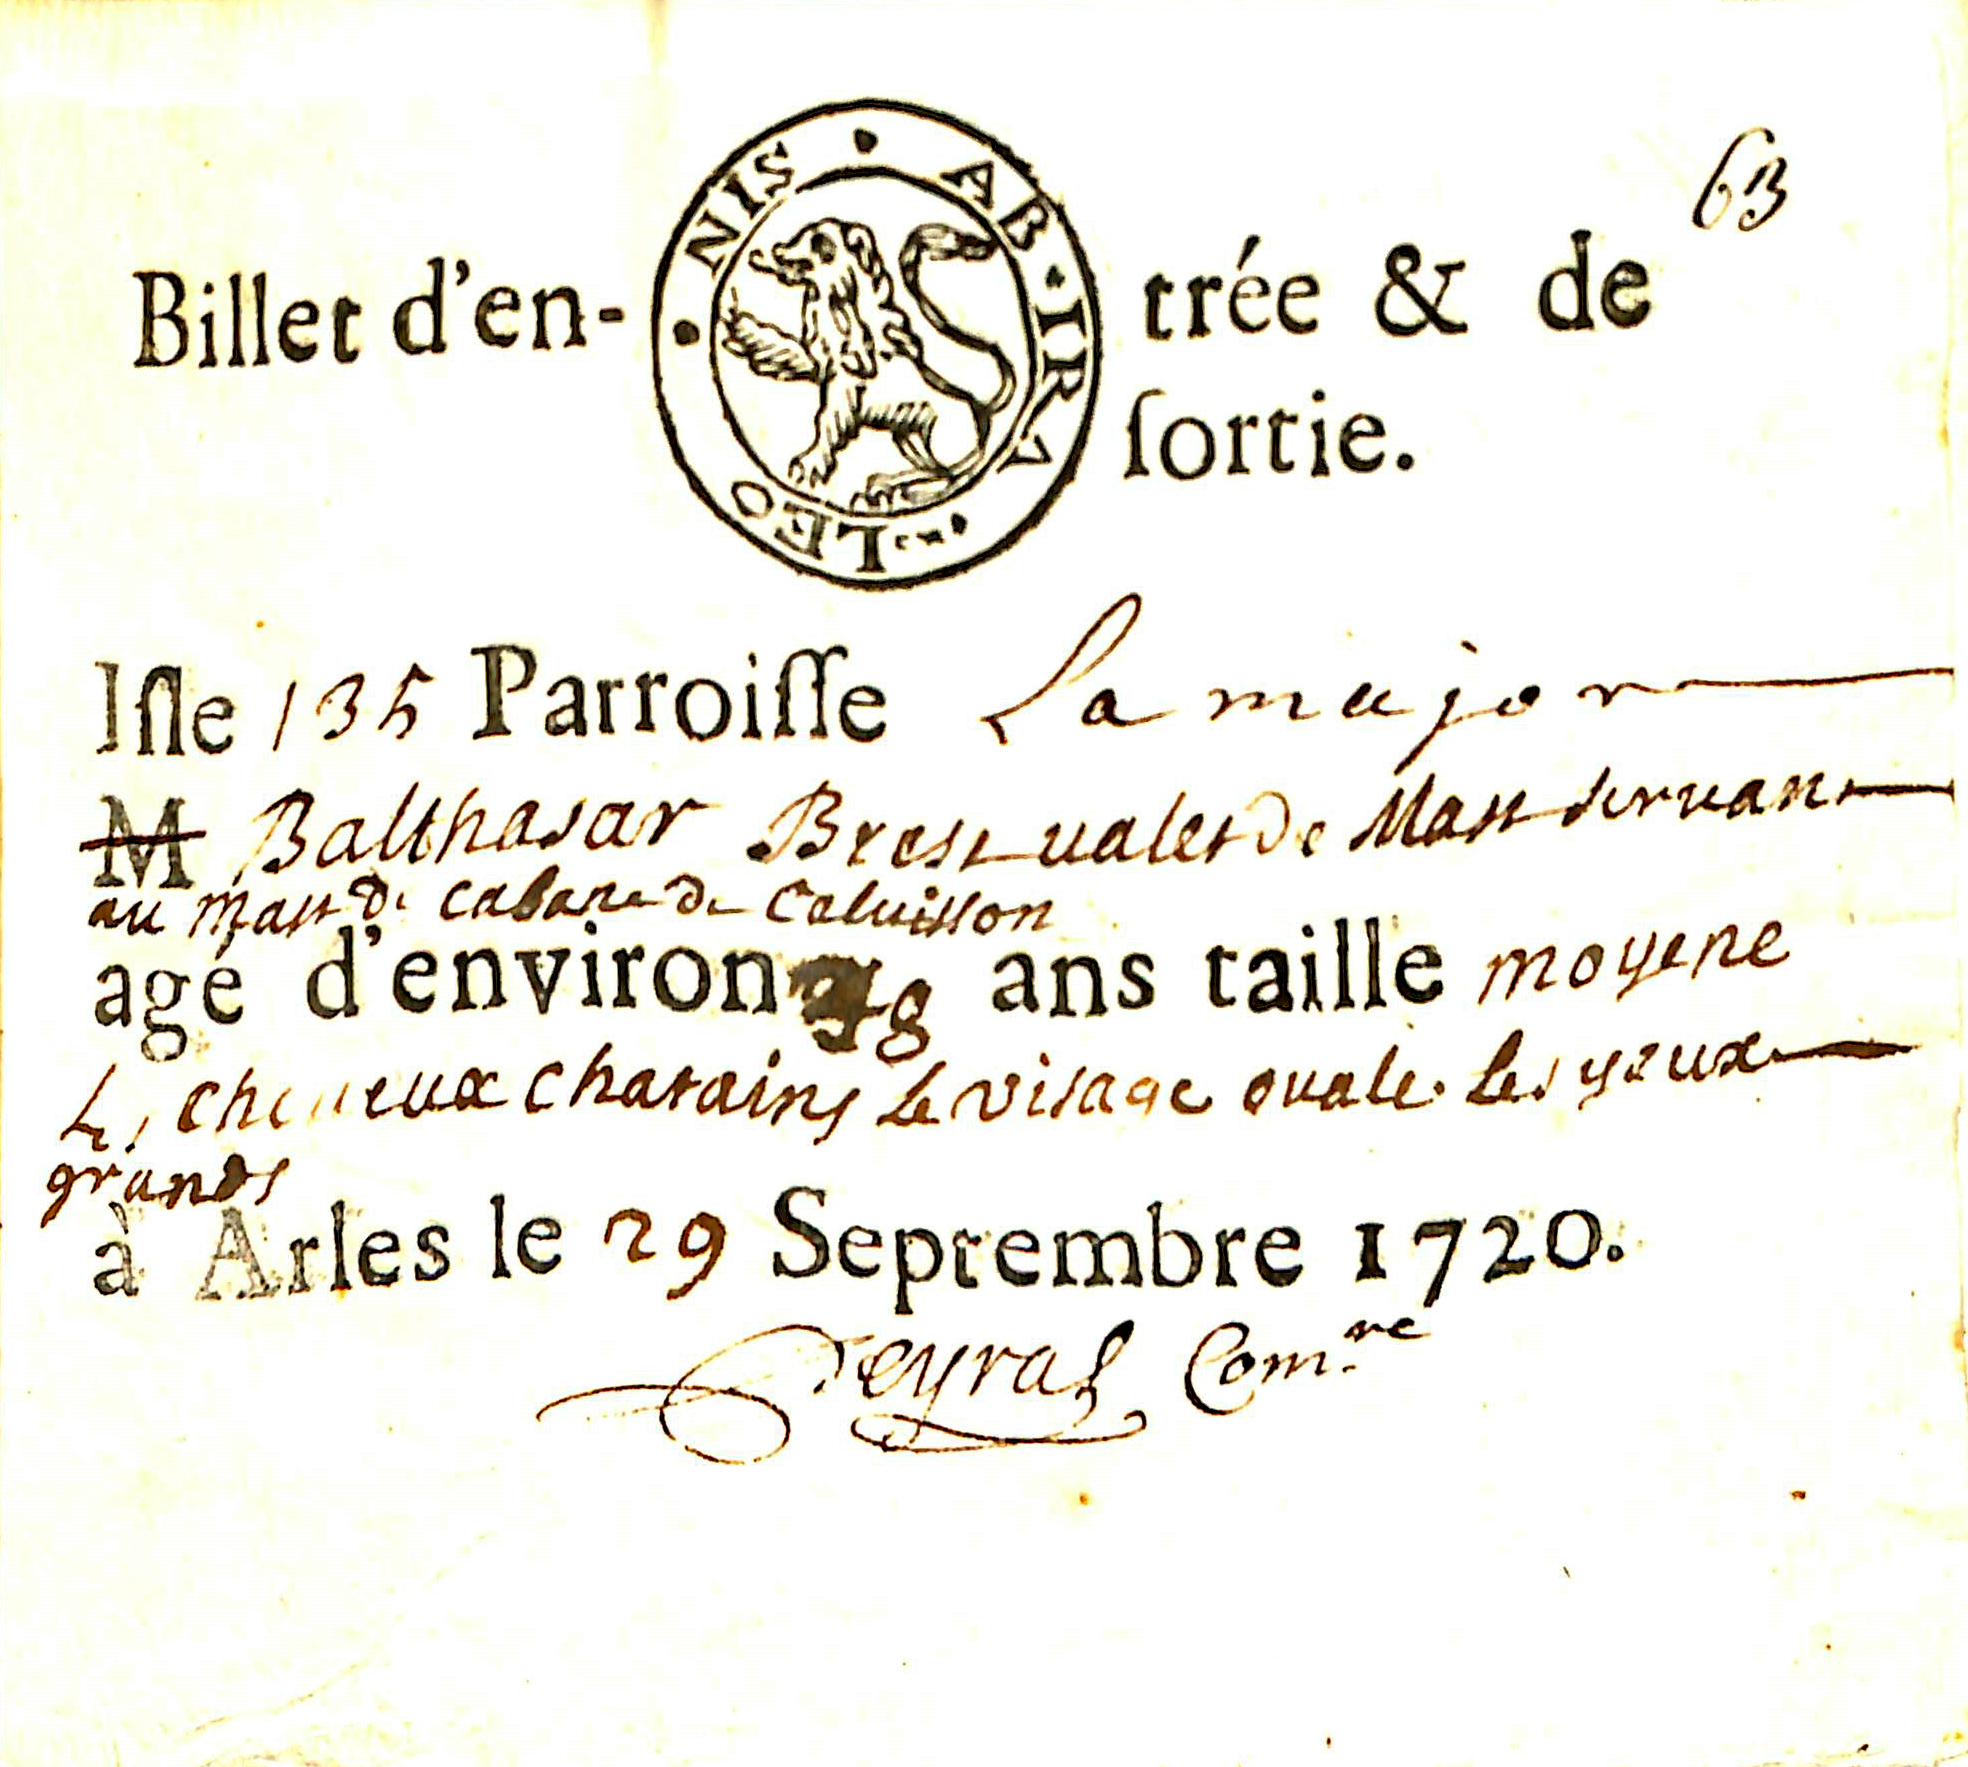 63
Billet d'en- trée & de
ſortie.
NIS · AB · IRA · LEO
Iſle 135 Parroiſſe La major
M Balthasar Brest valet de Mass servant
au mass de cabane de Caluisson
agé d'environ 48 ans taille moyene
Les cheueux chatains le visage ouale les yeux
grands
à Arles le 29 Septembre 1720.
Peyras Com.re